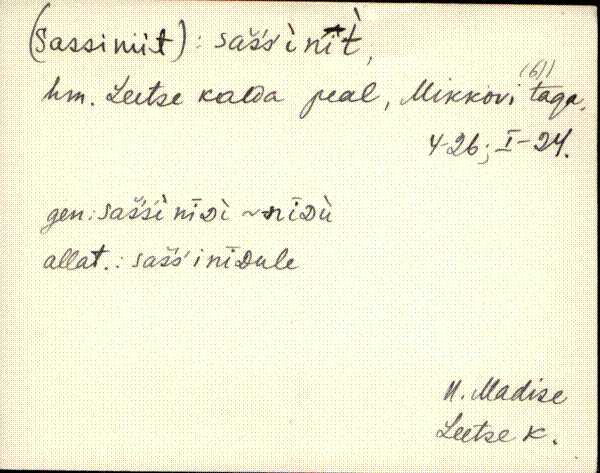 (Sassiniit) : sašś ì nīt̀,
hm. Leetse kalda peal, Mikkovi taga.
4-26; I-24.
gen: sašśì nīDì ~ nīDù
allat.: sašś i nīDule
H. Madise
Leetse k.